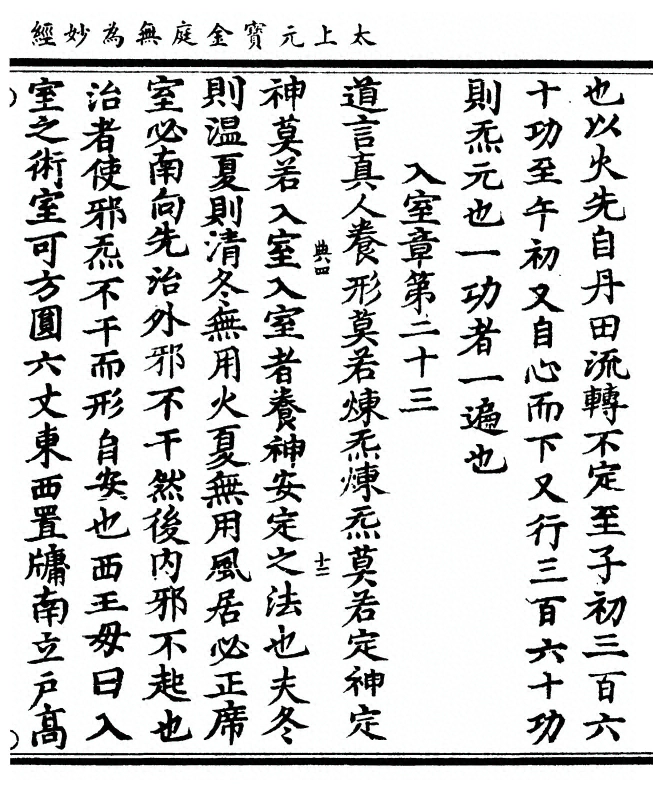 太上元寶金庭無為妙經
也以火先自丹田流轉不定至子初三百六
十功至午初又自心而下又行三百六十功
則炁元也一功者一遍也
入室章第二十三
道言真人養形莫若煉炁煉炁莫若定神定
典四
十二
神莫若入室入室者養神安定之法也夫冬
則温夏則清冬無用火夏無用風居必正席
室必南向先治外邪不干然後内邪不起也
治者使邪炁不干而形自安也西王母曰入
室之術室可方圓六丈東西置牖南立戶高